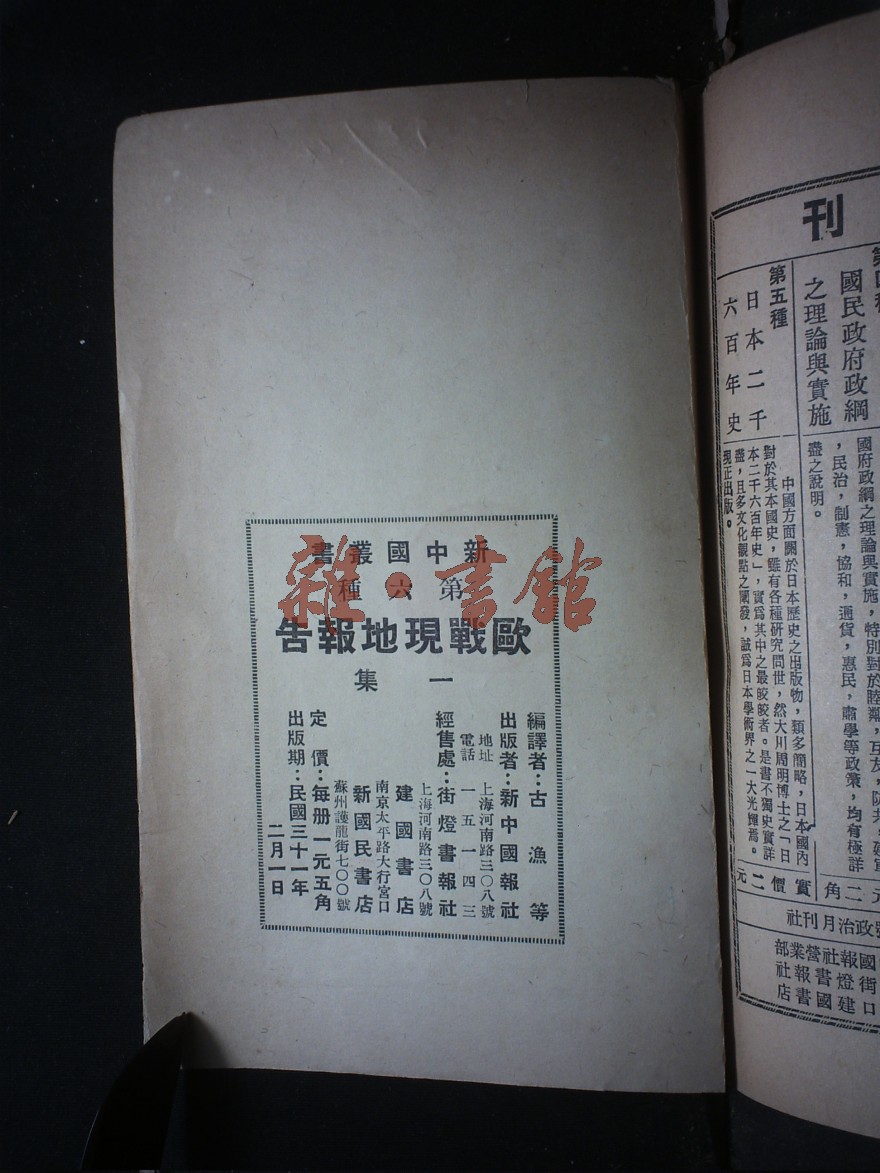 新中國叢書
第六種
歐戰現地報告
一集
編譯者：古漁等
出版者：新中國報社
地址 上海河南路三〇八號
電話 一五一四三
經售處：街燈書報社
上海河南路三〇八號
建國書店
南京太平路大行宮口
新國民書店
蘇州護龍街七〇〇號
定價：每册一元五角
出版期：民國三十一年
二月一日
雜·書館
刊
國民政府政綱
之理論與實施
國府政綱之理論與實施，特別對於睦鄰，互友，防共，建軍
，民治，制憲，協和，通貨，惠民，肅學等政策，均有極詳
盡之說明。
元二角
第五種
日本二千
六百年史
中國方面關於日本歷史之出版物，類多簡略，日本國內
對於其本國史，雖有各種研究問世，然大川周明博士之「日
本二千六百年史」，實爲其中之最皎皎者。是書不獨史實詳
盡，且多文化觀點之闡發，誠爲日本學術界之一大光輝焉。
現正出版。
實價二元
政治月刊社
國報社營業部
街燈書報社
口建國書店